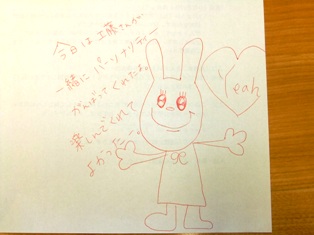 今日は工藤さんが
一緒にパーソナリティー
がんばってくれたよ。
楽しんでくれて
よかったー。
Yeah